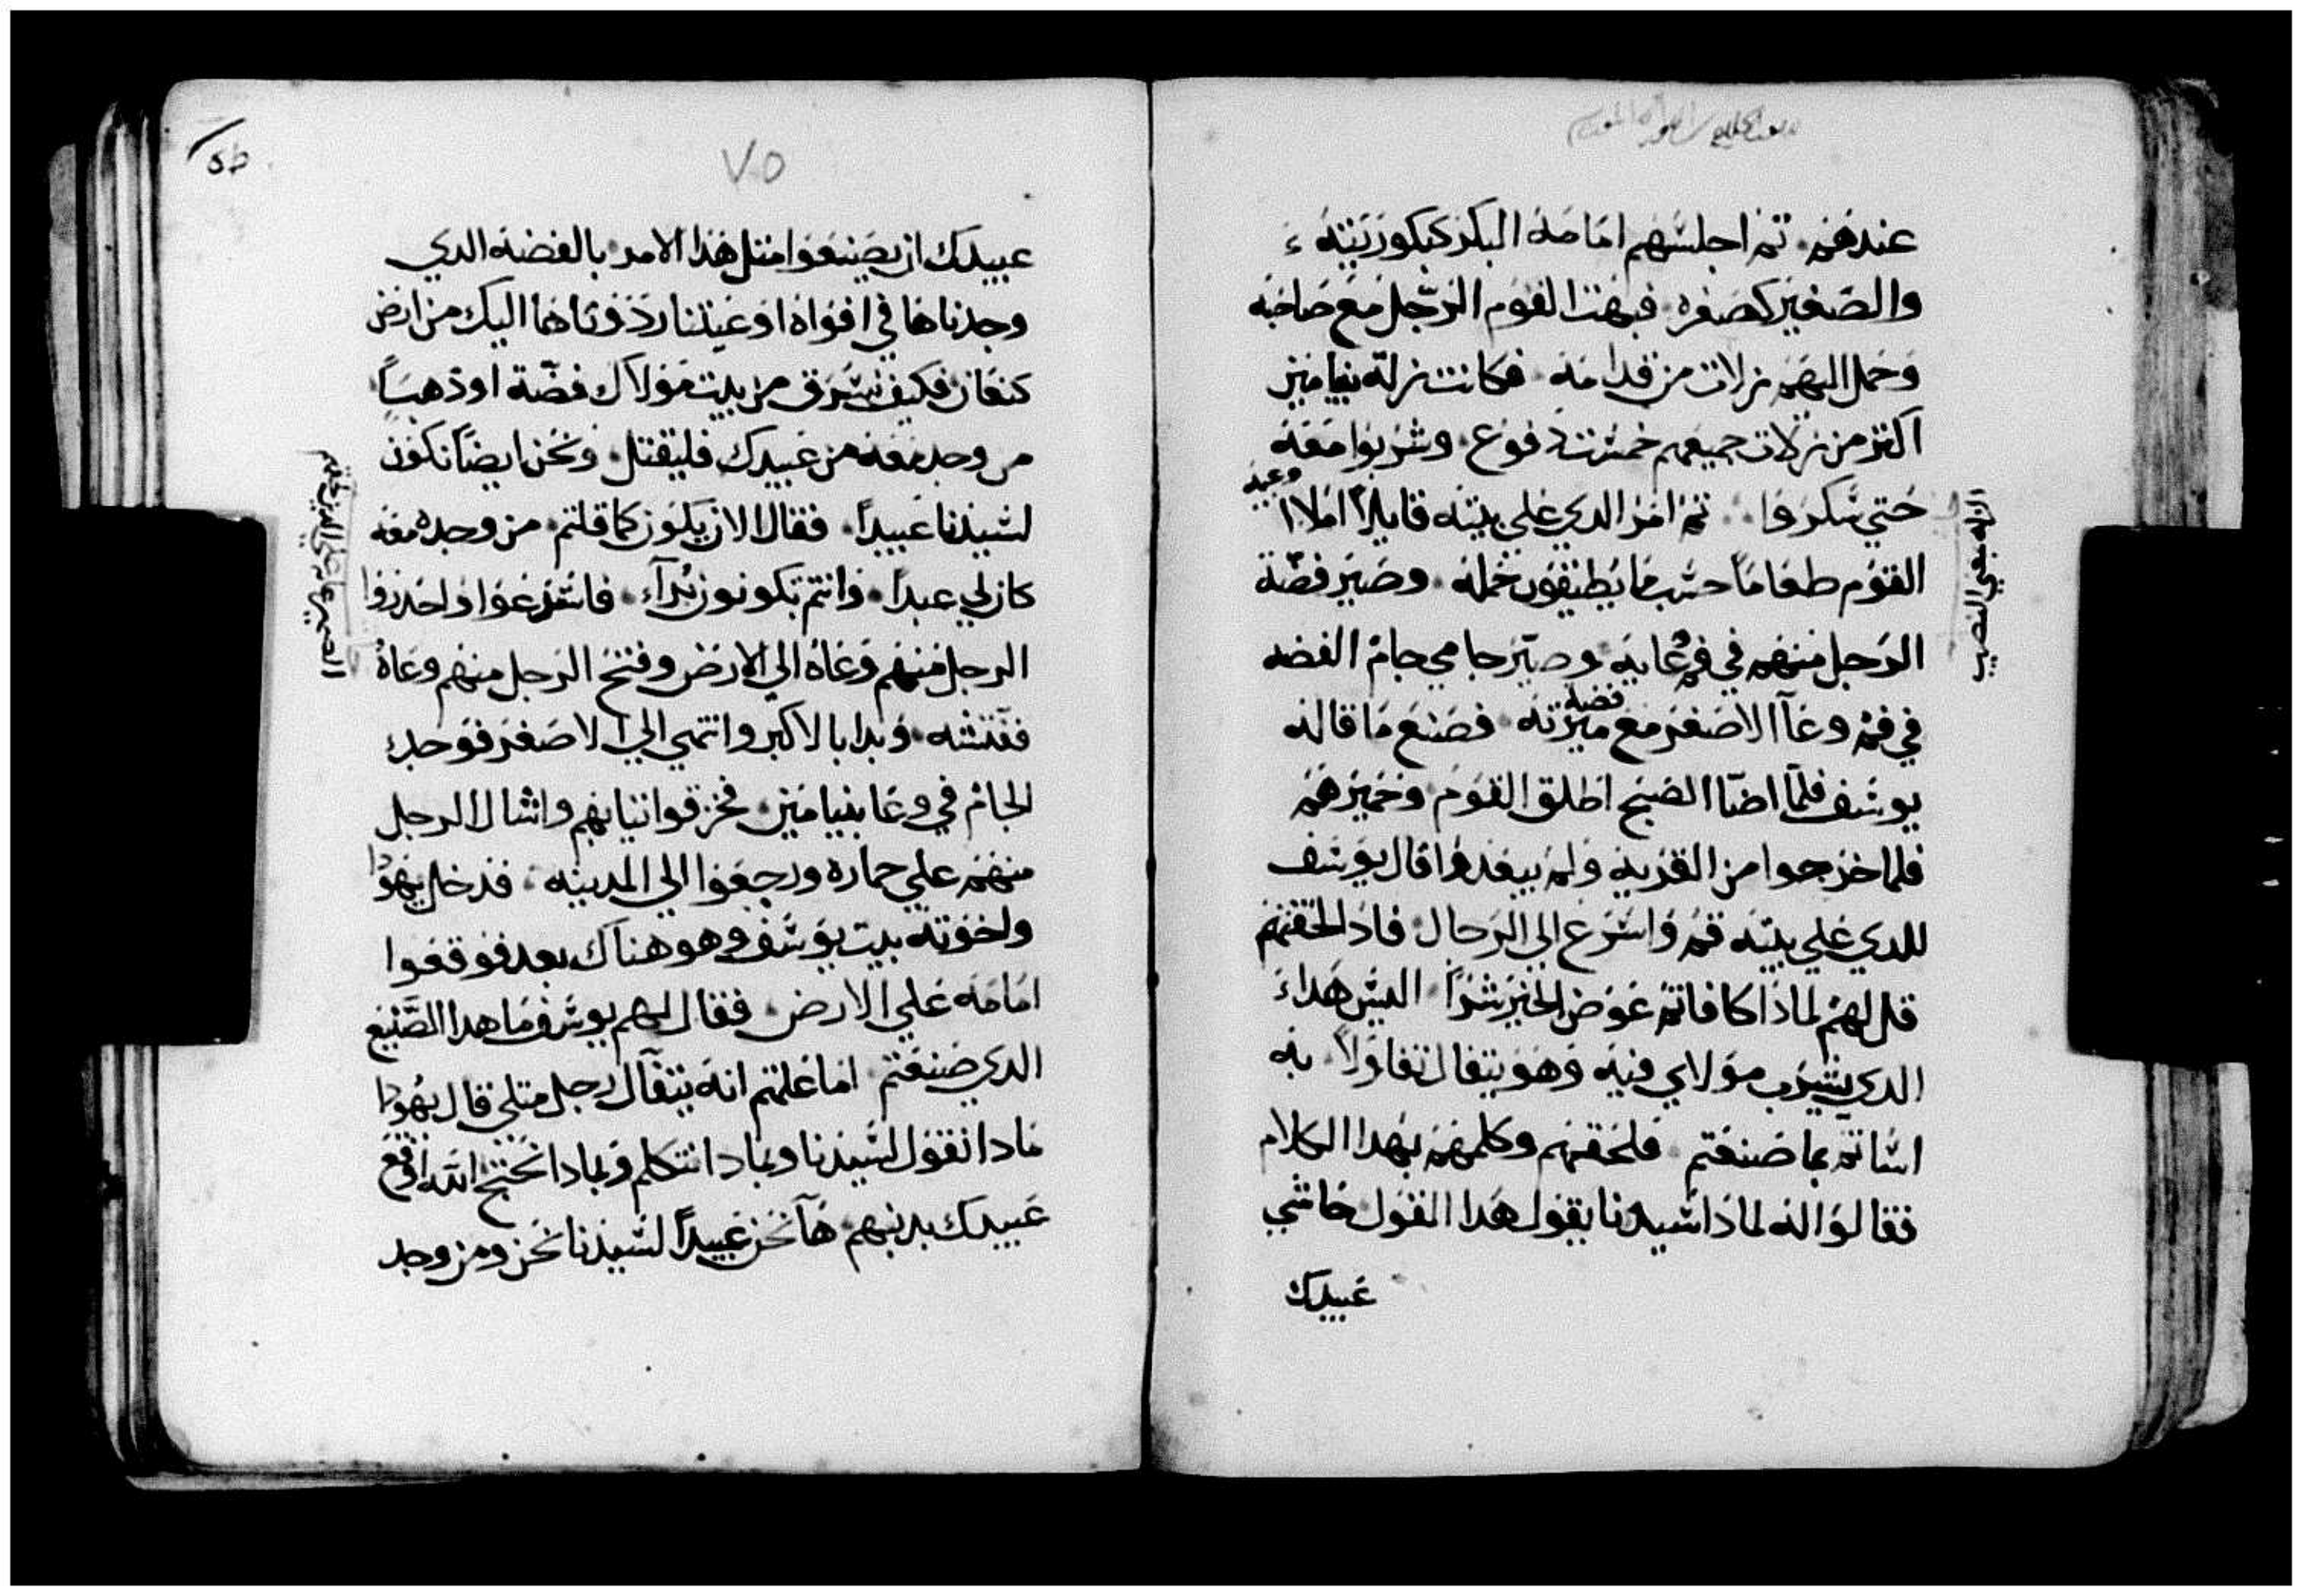 عندهم. تم اجلسهم امامه البكر كبكوريته
والصغير كصغره. فبهت القوم الرجل مع صاحبه
وحمل اليهم نزلات من قدامه. فكانت نزلة بنيامين
اكتر من نزلات جميعهم خمس دفوع. وشربوا معه
حتي سكروا. تم امر الدي علي بيته قايلاً املاا وعيه
القوم طعاماً حسب ما يطيقون حمله. وصير فضة
الرجل منهم في فم وعايه وصير جامي جام الفضه
في فم وعاا الاصغر مع فضه ميرته. فصنع ما قاله
يوسف فلما اضاا الصبح اطلق القوم وحميرهم
فلما خرجوا من القريه ولم يبعدوا قال يوسف
للدي علي بيته قم واسرع الي الرجال. فادا لحقتهم
قل لهم لمادا كافاتم عوض الخير شراً. اليس هدا
الدي يشرب مولاي فيه وهو يتفال تفاولاً به
اساتم بما صنعتم. فلحقهم وكلمهم بهدا الكلام
فقالوا له لمادا سيدنا يقول هدا القول حاشي
عبيدك
النزله بمعني النصيب
٧٥
عبيدك ان يصنعوا متل هدا الامر. بالفضه الدي
وجدناها في افواه اوعيتنا رددناها اليك من ارض
كنعان فكيف نسرق من بيت مولاك فضة او دهباً
من وجد معه من عبيدك فليقتل. ونحن ايضاً نكون
لسيدنا عبيداً. فقال الان يكون كما قلتم. من وجد معه
كان لي عبداً. وانتم تكونون برآء. فاسرعوا واحدروا
الرجل منهم وعاه الي الارض وفتح الرجل منهم وعاه
ففتشه. وبدا بالاكبر وانتهي الي الاصغر فوجد
الجام في وعا بنيامين. فخرقوا تيابهم واشال الرجل
منهم علي حماره ورجعوا الي المدينه. فدخل يهودا
واخوته بيت يوسف وهو هناك بعد فوقعوا
امامه علي الارض. فقال لهم يوسف ما هدا الصنيع
الدي صنعتم. اما علمتم انه يتفآل رجل متلي قال يهودا
مادا نقول لسيدنا وبمادا نتكلم وبمادا نحتج الله اوقع
عبيدك بدنبهم. ها نحن عبيداً لسيدنا نحن ومن وجد